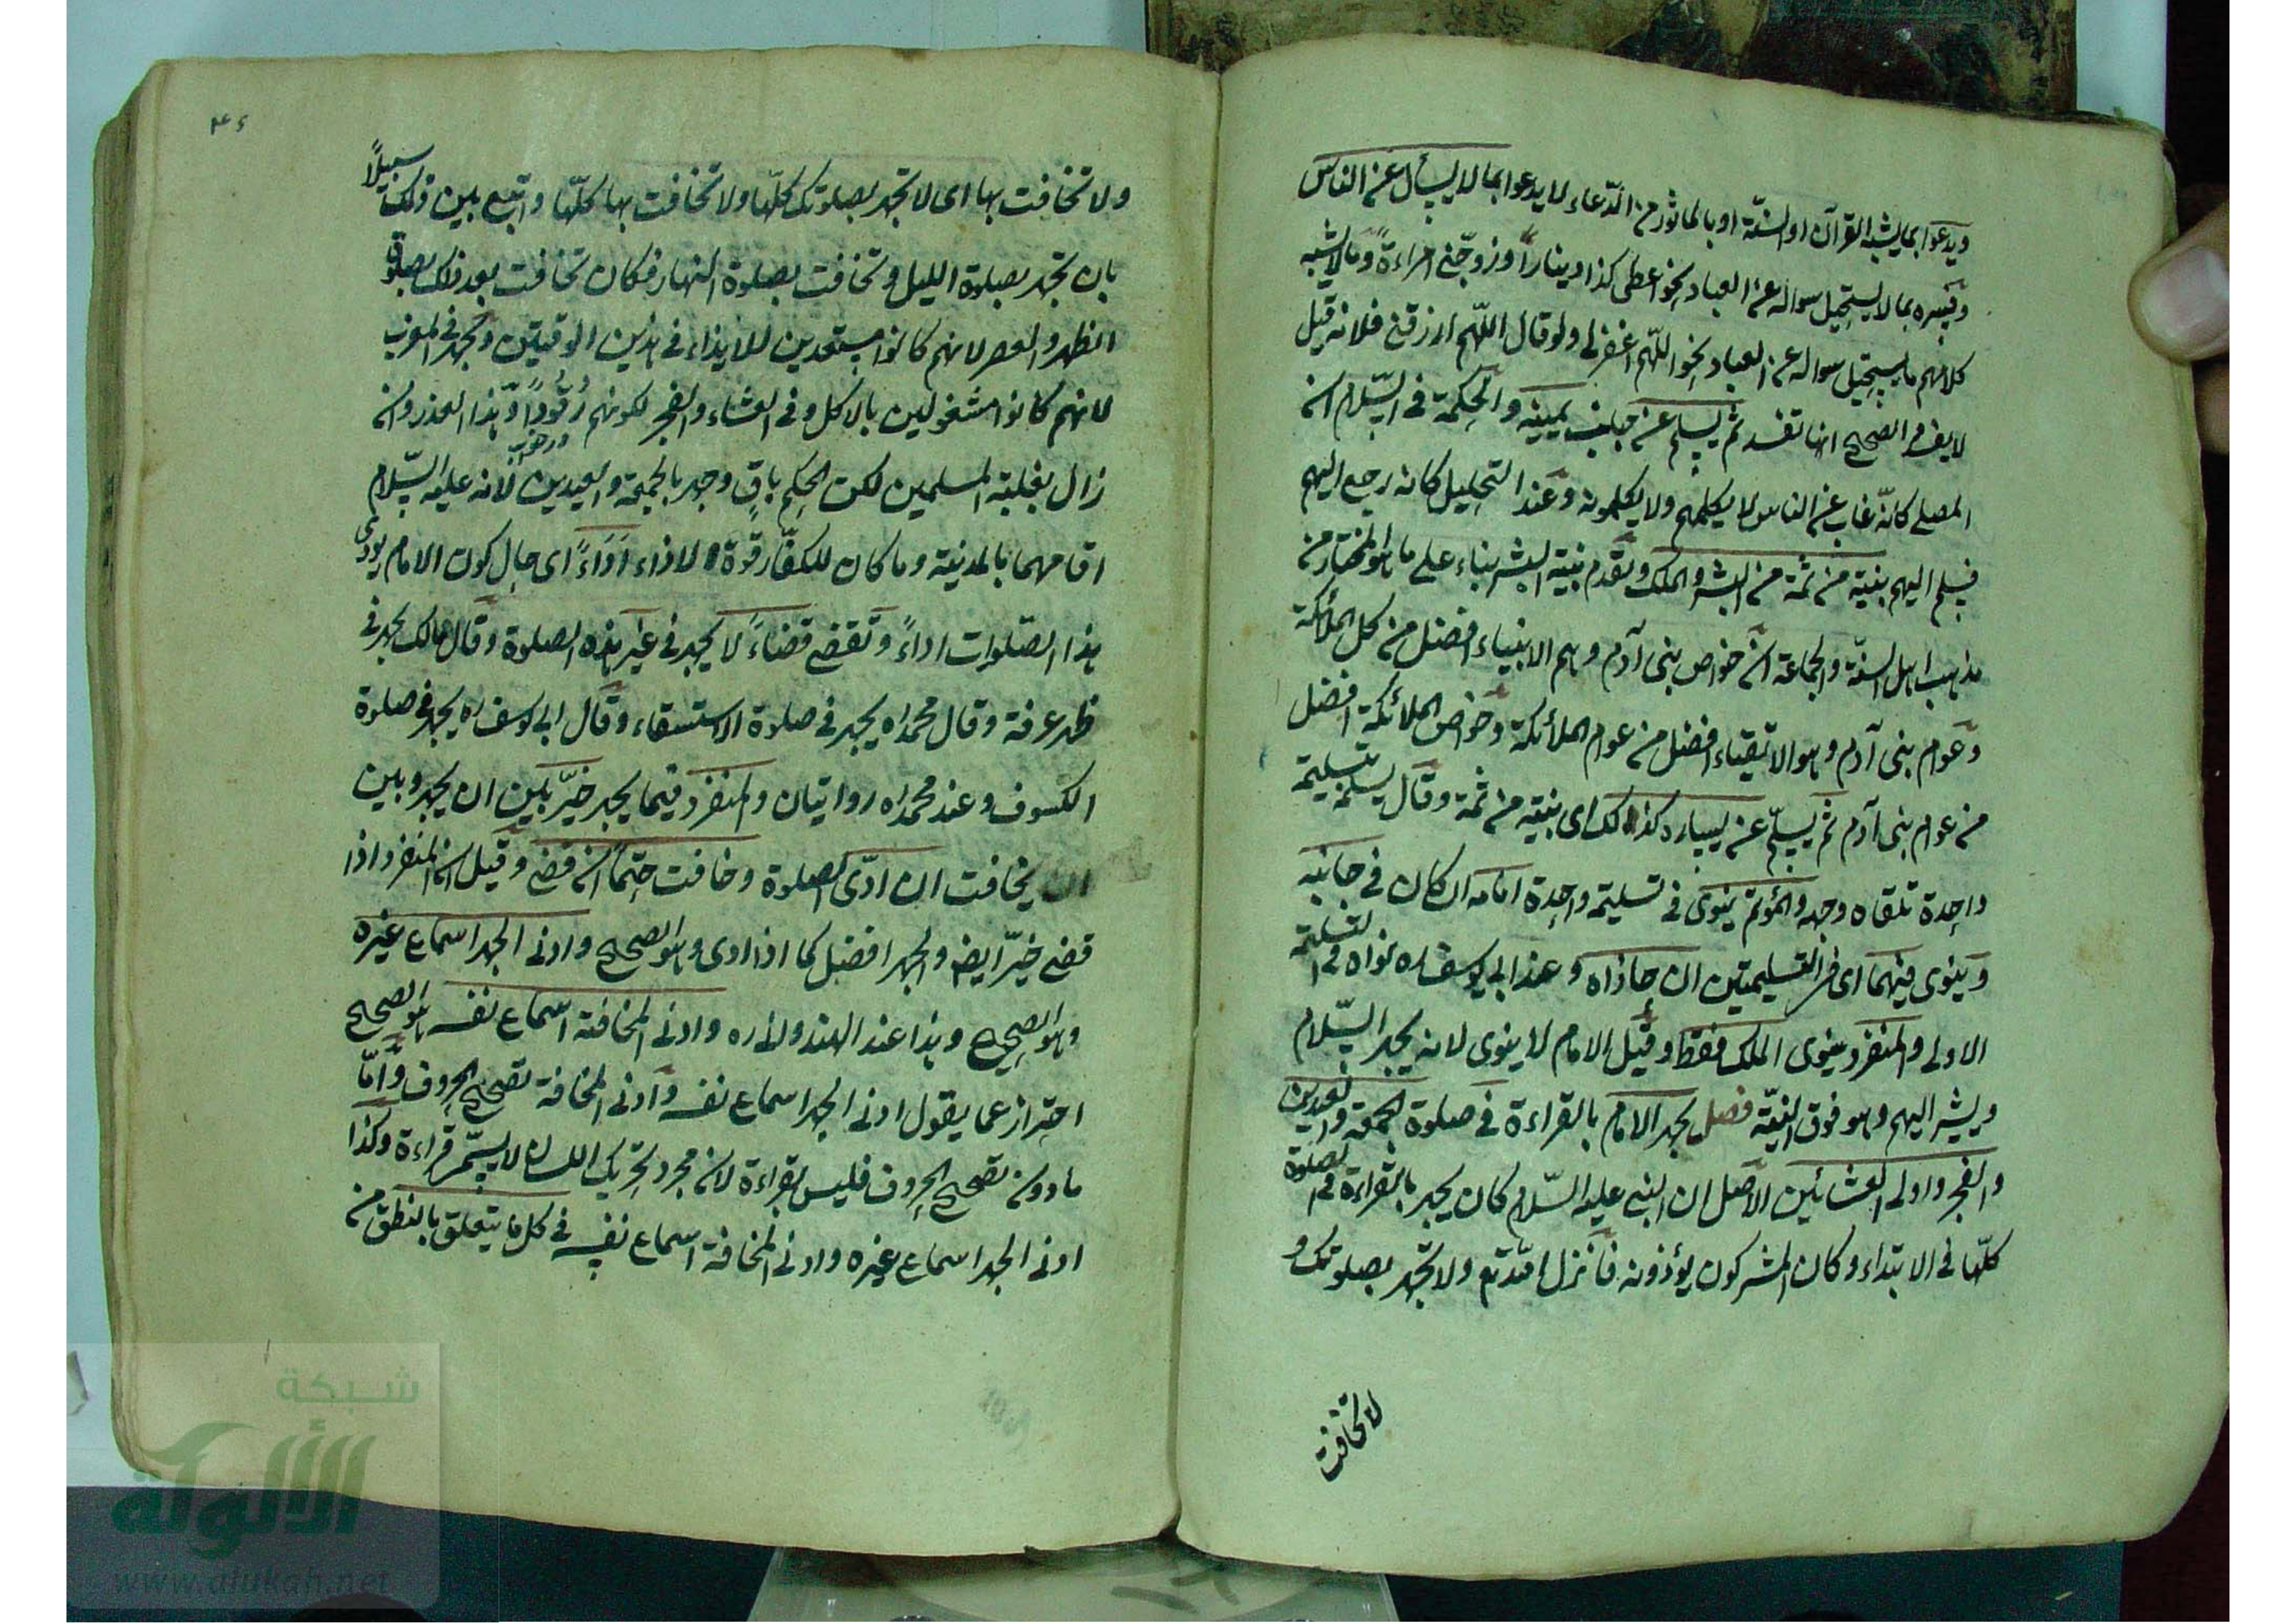 ويدعوا بما يشبه القرآن او السنّة او بالماثور من الدّعاء لا يدعوا بما لا يسأل عن الناس
وتفسيره بما لا يستحيل سواله عن العباد نحو اعطى كذا دينارا وزوّجنى امراءة وما لا يشبه
كلامهم ما يستحيل سواله عن العباد نحو اللّهم اغفر لى ولو قال اللّهم ارزقنى فلانه قيل
لا يفسد الصحيح انها تفسد ثم يسلم عن جانب يمينه والحكمة فى السّلام ان
المصلى كانّه غاب عن الناس لا يكلمهم ولا يكلمونه وعند التحليل كانه رجع اليهم
فيسلم اليهم بنية من ثمة من البشر والملك وتقدم بنية البشر بناء على ما هو المختار من
مذهب اهل السنّة والجماعة ان خواص بنى آدم وهم الانبياء افضل من كل الملائكة
وعوام بنى آدم وهو الاتقياء افضل من عوام الملائكة وخواص الملائكة افضل
من عوام بنى آدم ثم يسلّم عن يساره كذلك اى بنية من ثمة وقال يسلم تسليمة
واحدة تلقاه وجهه والمؤتم ينوى فى تسليمة واحدة امامه ان كان فى جانبه
وينوى فيهما اى فى التسليمتين ان حاذاه وعند ابى يوسف ره نواه فى التسليمة
الاولى والمنفرد ينوى الملك فقط وقيل الامام لا ينوى لانه يجهر السّلام
ويشير اليهم وهو فوق النيّة فصل يجهر الامام بالقراءة فى صلوة الجمعة والعيدين
والفجر واولى العشائين الاصل ان النبى عليه السّلام كان يجهر بالقراءة فى الصلوة
كلّها فى الابتداء وكان المشركون يؤذونه فانزل الله تع ولا تجهر بصلوتك و
لا تخافت
٤٦
ولا تخافت بها اى لا تجهر بصلوتك كلّها ولا تخافت بها كلّها وابتغ بين ذلك سبيلاً
بان تجهر بصلوة الليل وتخافت بصلوة النهار فكان تخافت بعد ذلك بصلوة
الظهر والعصر لانهم كانوا مستعدين للايذاء فى هذين الوقيتين ويجهر فى المغرب
لانهم كانوا مشغولين بالاكل وفى العشاء والفجر لكونهم رُقُوداً وهذا العذر وان
زال بغلبة المسلمين لكن الحكم باقٍ وجهر بالجمعة والعيدين لانه عليه السّلام
اقامهما بالمدينة وما كان للكفّار قوّة الاذاء اَدَاءً اى حال كون الامام يودى
هذا الصّلوات اداءً وتقضى قضاءً لا يجهر فى غير هذه الصلوة وقال مالك يجهر فى
ظهر عرفة وقال محمد ره يجهر فى صلوة الاستسقاء وقال ابى يوسف ره يجهر فى صلوة
الكسوف وعند محمد ره روايتان والمنفرد فيما يجهر خيّر بين ان يجهر وبين
ان يخافت ان ادّى الصلوة وخافت حتماً ان قضى وقيل ان المنفرد اذا
قضى خيّر ايضه والجهر افضل كما اذا ادى وهو الصحيح وادنى الجهر اسماع غيره
وهو الصحيح وهذا عند الهندوانى ره وادنى المخافتة اسماع نفسه هو الصحيح
احتراز عما يقول ادنى الجهر اسماع نفسه وادنى المخافتة تصحيح الحروف وامّا
ما دونه تصحيح الحروف فليس بقراءة لانه مجرد تحريك اللسان لا يسمّى قراءة وكذا
ادنى الجهر اسماع غيره وادنى المخافتة اسماع نفسه فى كل ما يتعلق بالنطق من
شبكة
الألوكة
www.alukah.net